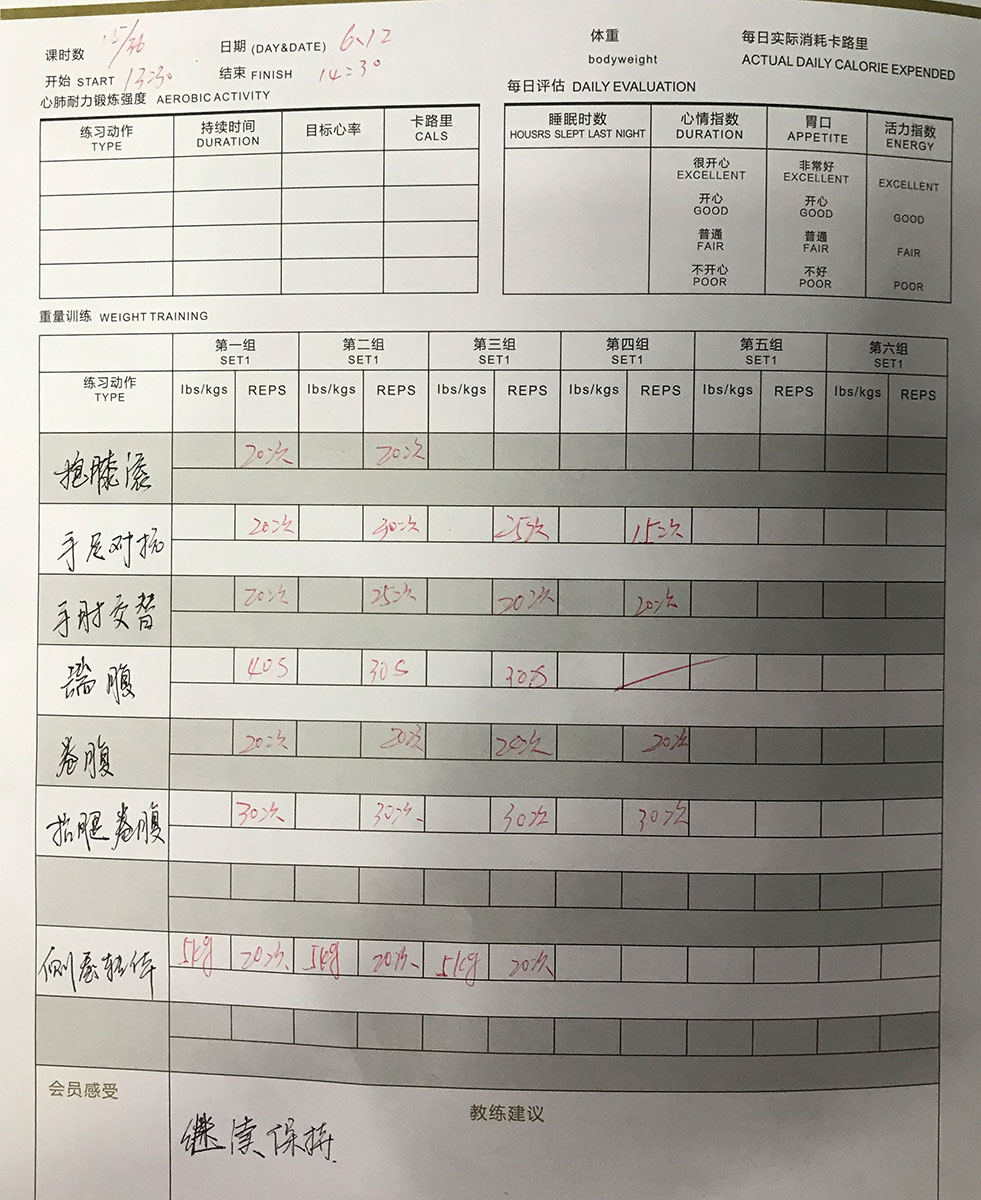 课时数 15/36 日期 (DAY&DATE) 6.12 体重 bodyweight 每日实际消耗卡路里 ACTUAL DAILY CALORIE EXPENDED
开始 START 13:30 结束 FINISH 14:30
心肺耐力锻炼强度 AEROBICACTIVITY
练习动作 TYPE 持续时间 DURATION 目标心率 卡路里 CALS
每日评估 DAILY EVALUATION
睡眠时数 HOUSRS SLEPT LAST NIGHT 心情指数 DURATION 胃口 APPETITE 活力指数 ENERGY
很开心 EXCELLENT 非常好 EXCELLENT EXCELLENT
开心 GOOD 开心 GOOD GOOD
普通 FAIR 普通 FAIR FAIR
不开心 POOR 不好 POOR POOR
重量训练 WEIGHT TRAINING
第一组 SET1 第二组 SET1 第三组 SET1 第四组 SET1 第五组 SET1 第六组 SET1
练习动作 TYPE lbs/kgs REPS lbs/kgs REPS lbs/kgs REPS lbs/kgs REPS lbs/kgs REPS lbs/kgs REPS
抱膝滚 20次 20次
手足对抗 20次 30次 25次 15次
手肘交替 20次 25次 20次 20次
腹 40S 30S 30S
卷腹 20次 20次 20次 20次
抬腿卷腹 30次 30次 30次 30次
5kg 20次 5kg 20次 5kg 20次
会员感受
教练建议
继续保持